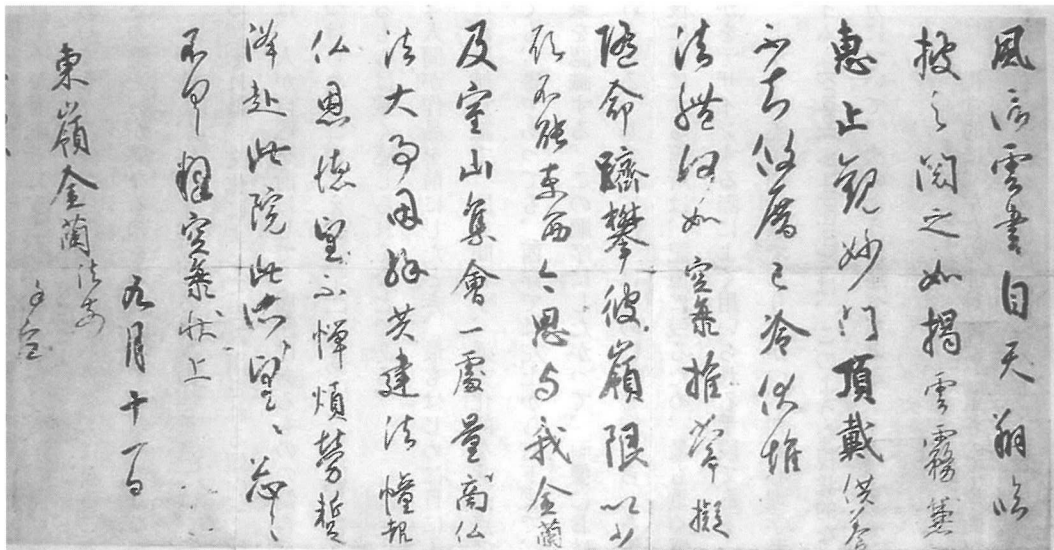 風信雲書自天翔臨
披之閲之如掲雲霧兼
恵止観妙門頂戴供養
不知攸厝已冷伏惟
法體何如空海推常擬
隨命躋攀彼嶺限以少
願不能東西今思与我金蘭
及室山集會一處量商仏
法大事因縁共建法幢報
仏恩徳望不憚煩勞蹔
降赴此院此所望々忩々
不具釋空海状上
九月十一日
東嶺金蘭法前
謹空